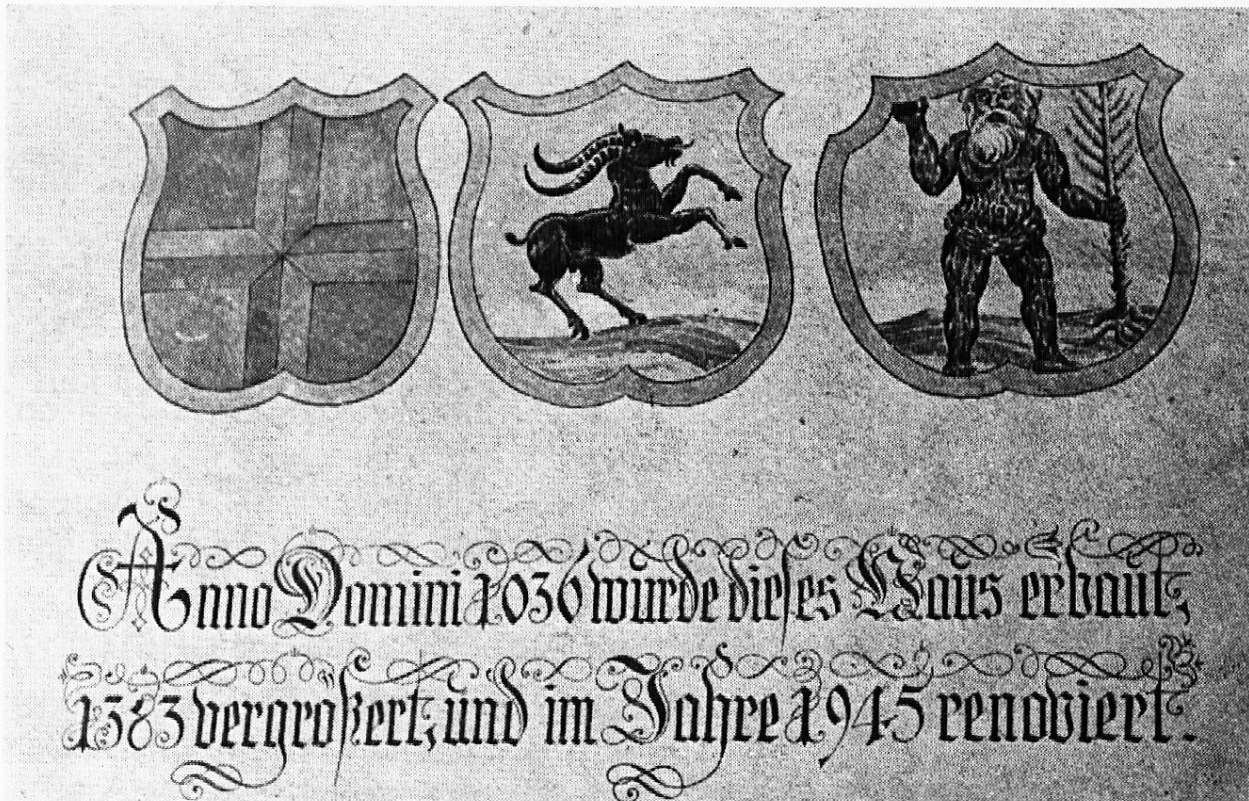 Anno Domini 1036 wurde dieses Haus erbaut,
1383 vergrößert, und im Jahre 1945 renoviert.